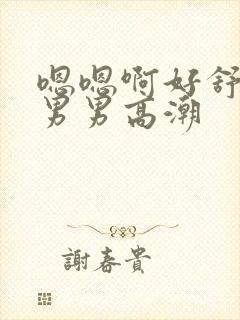 嗯嗯啊好舒
男男高潮
謝春貴